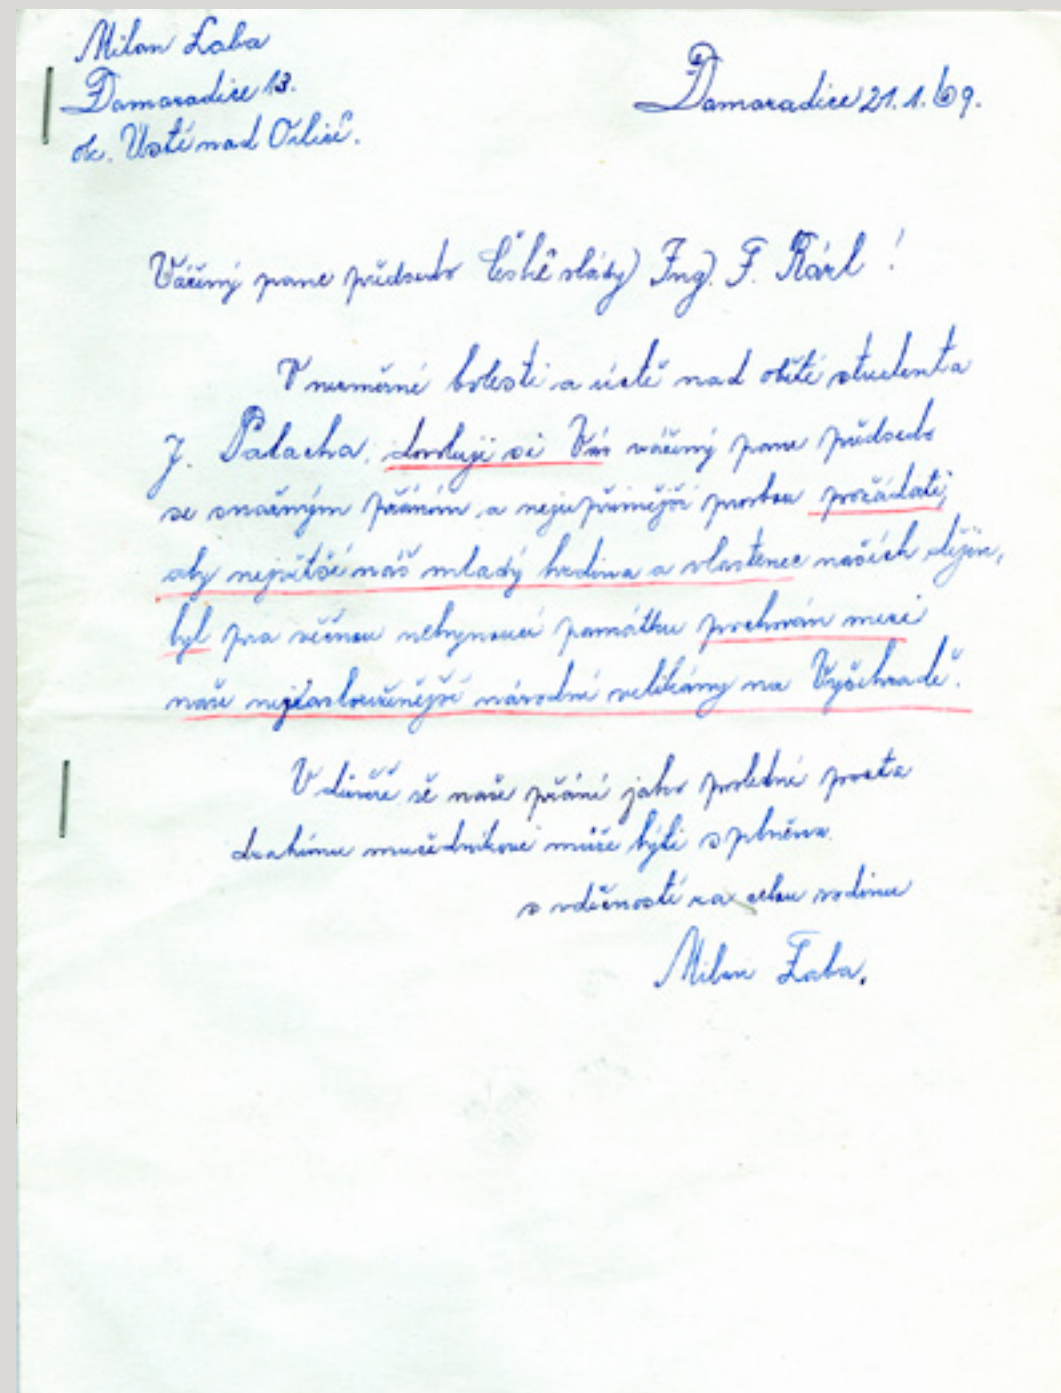 Milan Laba
Damaradice 13.
ok. Ústí nad Orlicí.
Damaradice 21.1.69.
Vážený pane předsedo České vlády) Ing). F. Rázl!
V nesmírné bolesti a úctě nad obětí studenta
J. Palacha, dovoluji si Vás vážený pane předsedo
se snažným přáním a nejupřímější prosbou požádati,
aby největší náš mladý hrdina a vlastenec našich dějin,
byl pro věčnou nehynoucí památku pochován mezi
naše nejzasloužilejší národní velikány na Vyšehradě.
V důvěře že naše přání jako poslední pocta
drahému mučedníkovi může býti splněna.
s vděčností za celou rodinu
Milan Laba.